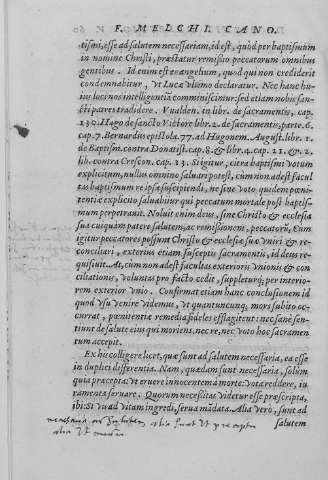 F. MELCHI. CANO.
tismi, esse ad salutem necessariam, id est, quòd per baptismum
in nomine Christi, præstatur remissio peccatorum omnibus
gentibus. Id enim est euangelium, quod qui non crediderit
condemnabitur, vt Lucæ vltimo declaratur. Nec hanc hu
ius loci nos intelligentiã comminiscimur: sed etiam nobis san-
cti patres tradidere. Vualden. in lib. de sacramentis, cap.
130. Hugo de sancto Victore libr. 2. de sacramentis, parte. 6.
cap. 7. Bernardus epistola. 77. ad Hugonem. August. libr. 1.
de Baptism. contra Donatist. cap. 8. & libr. 4. cap. 21. & 2.
lib. contra Crescon. cap. 33. Si igitur, citra baptismi votum
explicitum, nullus omnino saluari potest, cum non adest facul
tas baptismum re ipsa suscipiendi, ne sine voto quidem pœni-
tentiæ explicito saluabitur qui peccatum mortale post baptis-
mum perpetrauit. Noluit enim deus, sine Christo & ecclesia
sua cuiquam patere salutem, ac remissionem, peccatorũ, Cum
igitur peccatores possunt Christo & ecclesiæ suæ vniri & re-
conciliari, exterius etiam susceptis sacramentis, id deus re-
quisiuit. At, cum non adest facultas exterioris vnionis & con
ciliationis, voluntas pro facto cedit, suppleturq; per interio-
rem exterior vnio. Confirmat etiam hanc conclusionem id
quod vsu venire videmus, vt quantuncunq; mors subito oc-
currat, pœnitentiæ remedia fideles efflagitent: nec sanè sen-
tiunt de salute eius qui moriens, nec re, nec voto hoc sacramen
tum accepit.
Ex his colligere licet, quæ sunt ad salutem necessaria, ea esse
in duplici differentia. Nam, quædam sunt necessaria, solum
quia præcepta: vt eruere innocentem à morte: vota reddere, iu
ramenta seruare. Quorum necessitas videtur esse præscripta,
ibi: Si vis ad vitam ingredi, serua mãdata. Alia verò, sunt ad
salutem
alia sunt vt præcepta
alia vt media